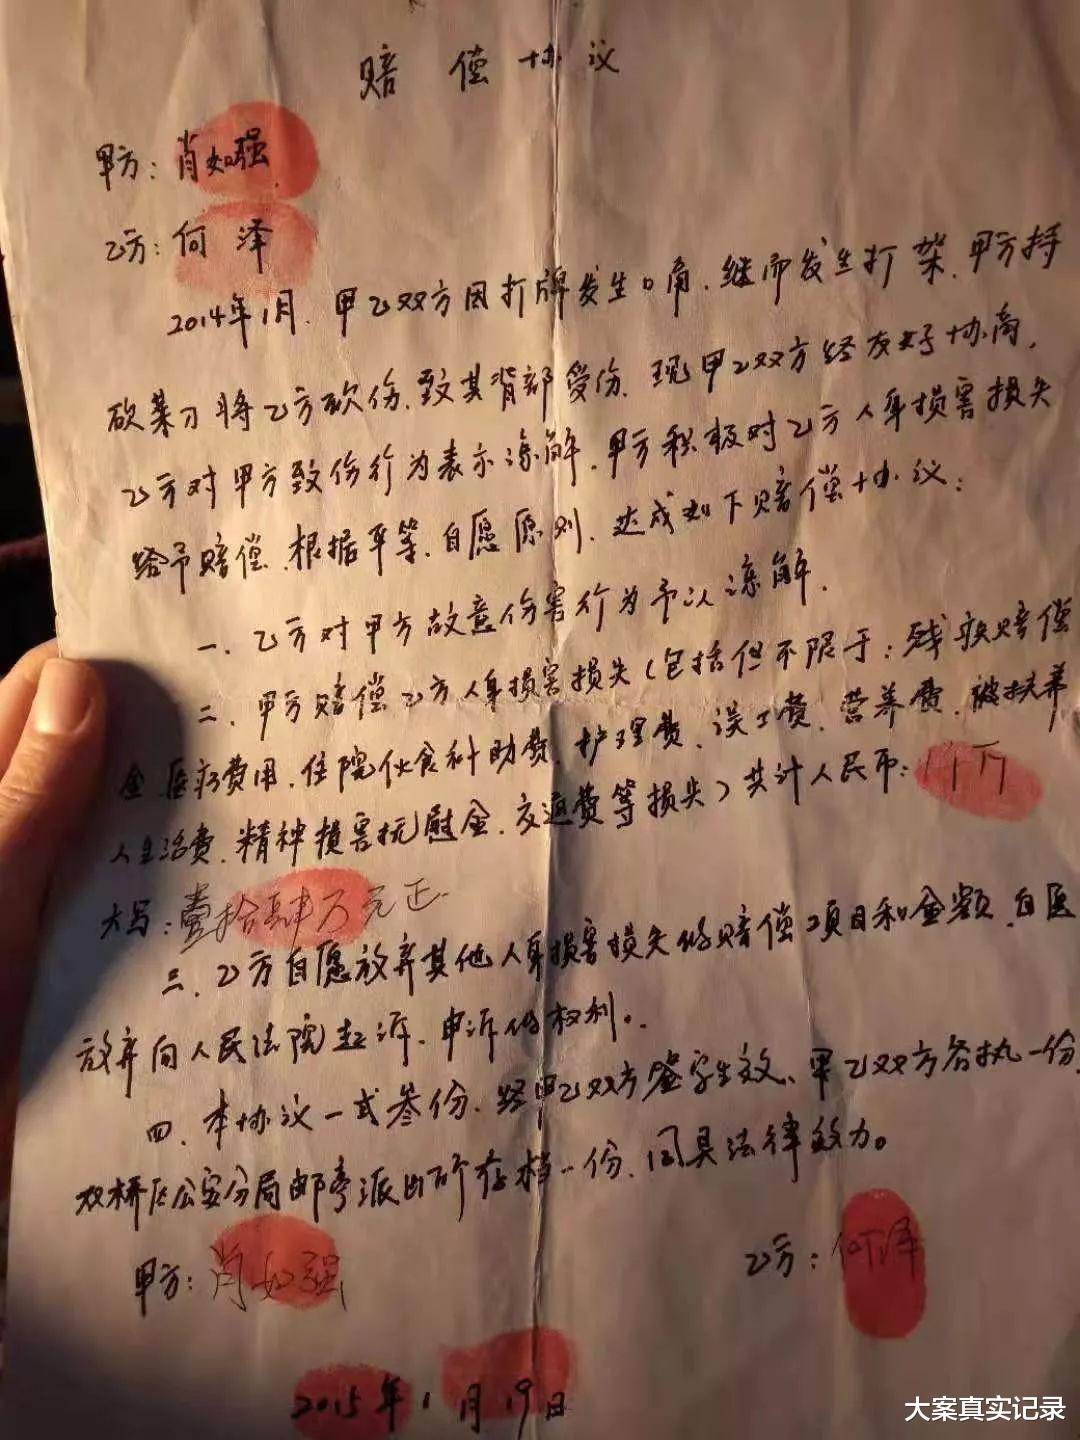 赔偿协议
甲方：肖如强
乙方：何泽
2014年1月，甲乙双方因打牌发生口角，继而发生打架，甲方持
砍菜刀将乙方砍伤，致其背部受伤，现甲乙双方经友好协商，
乙方对甲方致伤行为表示谅解，甲方积极对乙方人身损害损失
给予赔偿，根据平等、自愿愿则，达成如下赔偿协议：
一、乙方对甲方故意伤害行为予以谅解．
二、甲方赔偿乙方人身损害损失（包括但不限于：残疾赔偿
金、医疗费用、住院伙食补助费、护理费、误工费、营养费、被扶养
人生活费、精神损害抚慰金、交通费等损失）共计人民币：14万
大写：壹拾肆万元正
三、乙方自愿放弃其他人身损害损失的赔偿项目和金额，自愿
放弃向人民法院起诉、申诉的权利。
四、本协议一式叁份，经甲乙双方签字生效、甲乙双方各执一份，
双桥区公安分局邮亭派出所存档一份，同具法律效力。
甲方：肖如强
乙方：何泽
2015年1月19日
大案真实记录